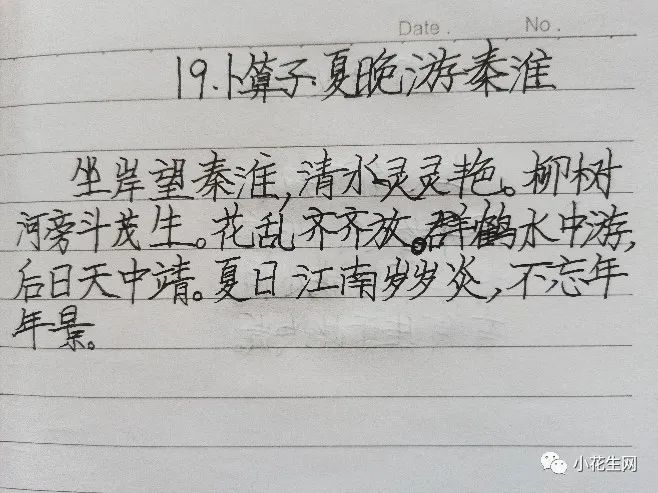 Date. No.
19.卜算子·夏晚游秦淮
坐岸望秦淮,清水灵灵艳。柳树
河旁斗茂生。花乱齐齐放。群鹤水中游,
后日天中靖。夏日江南岁岁炎,不忘年
年景。
小花生网